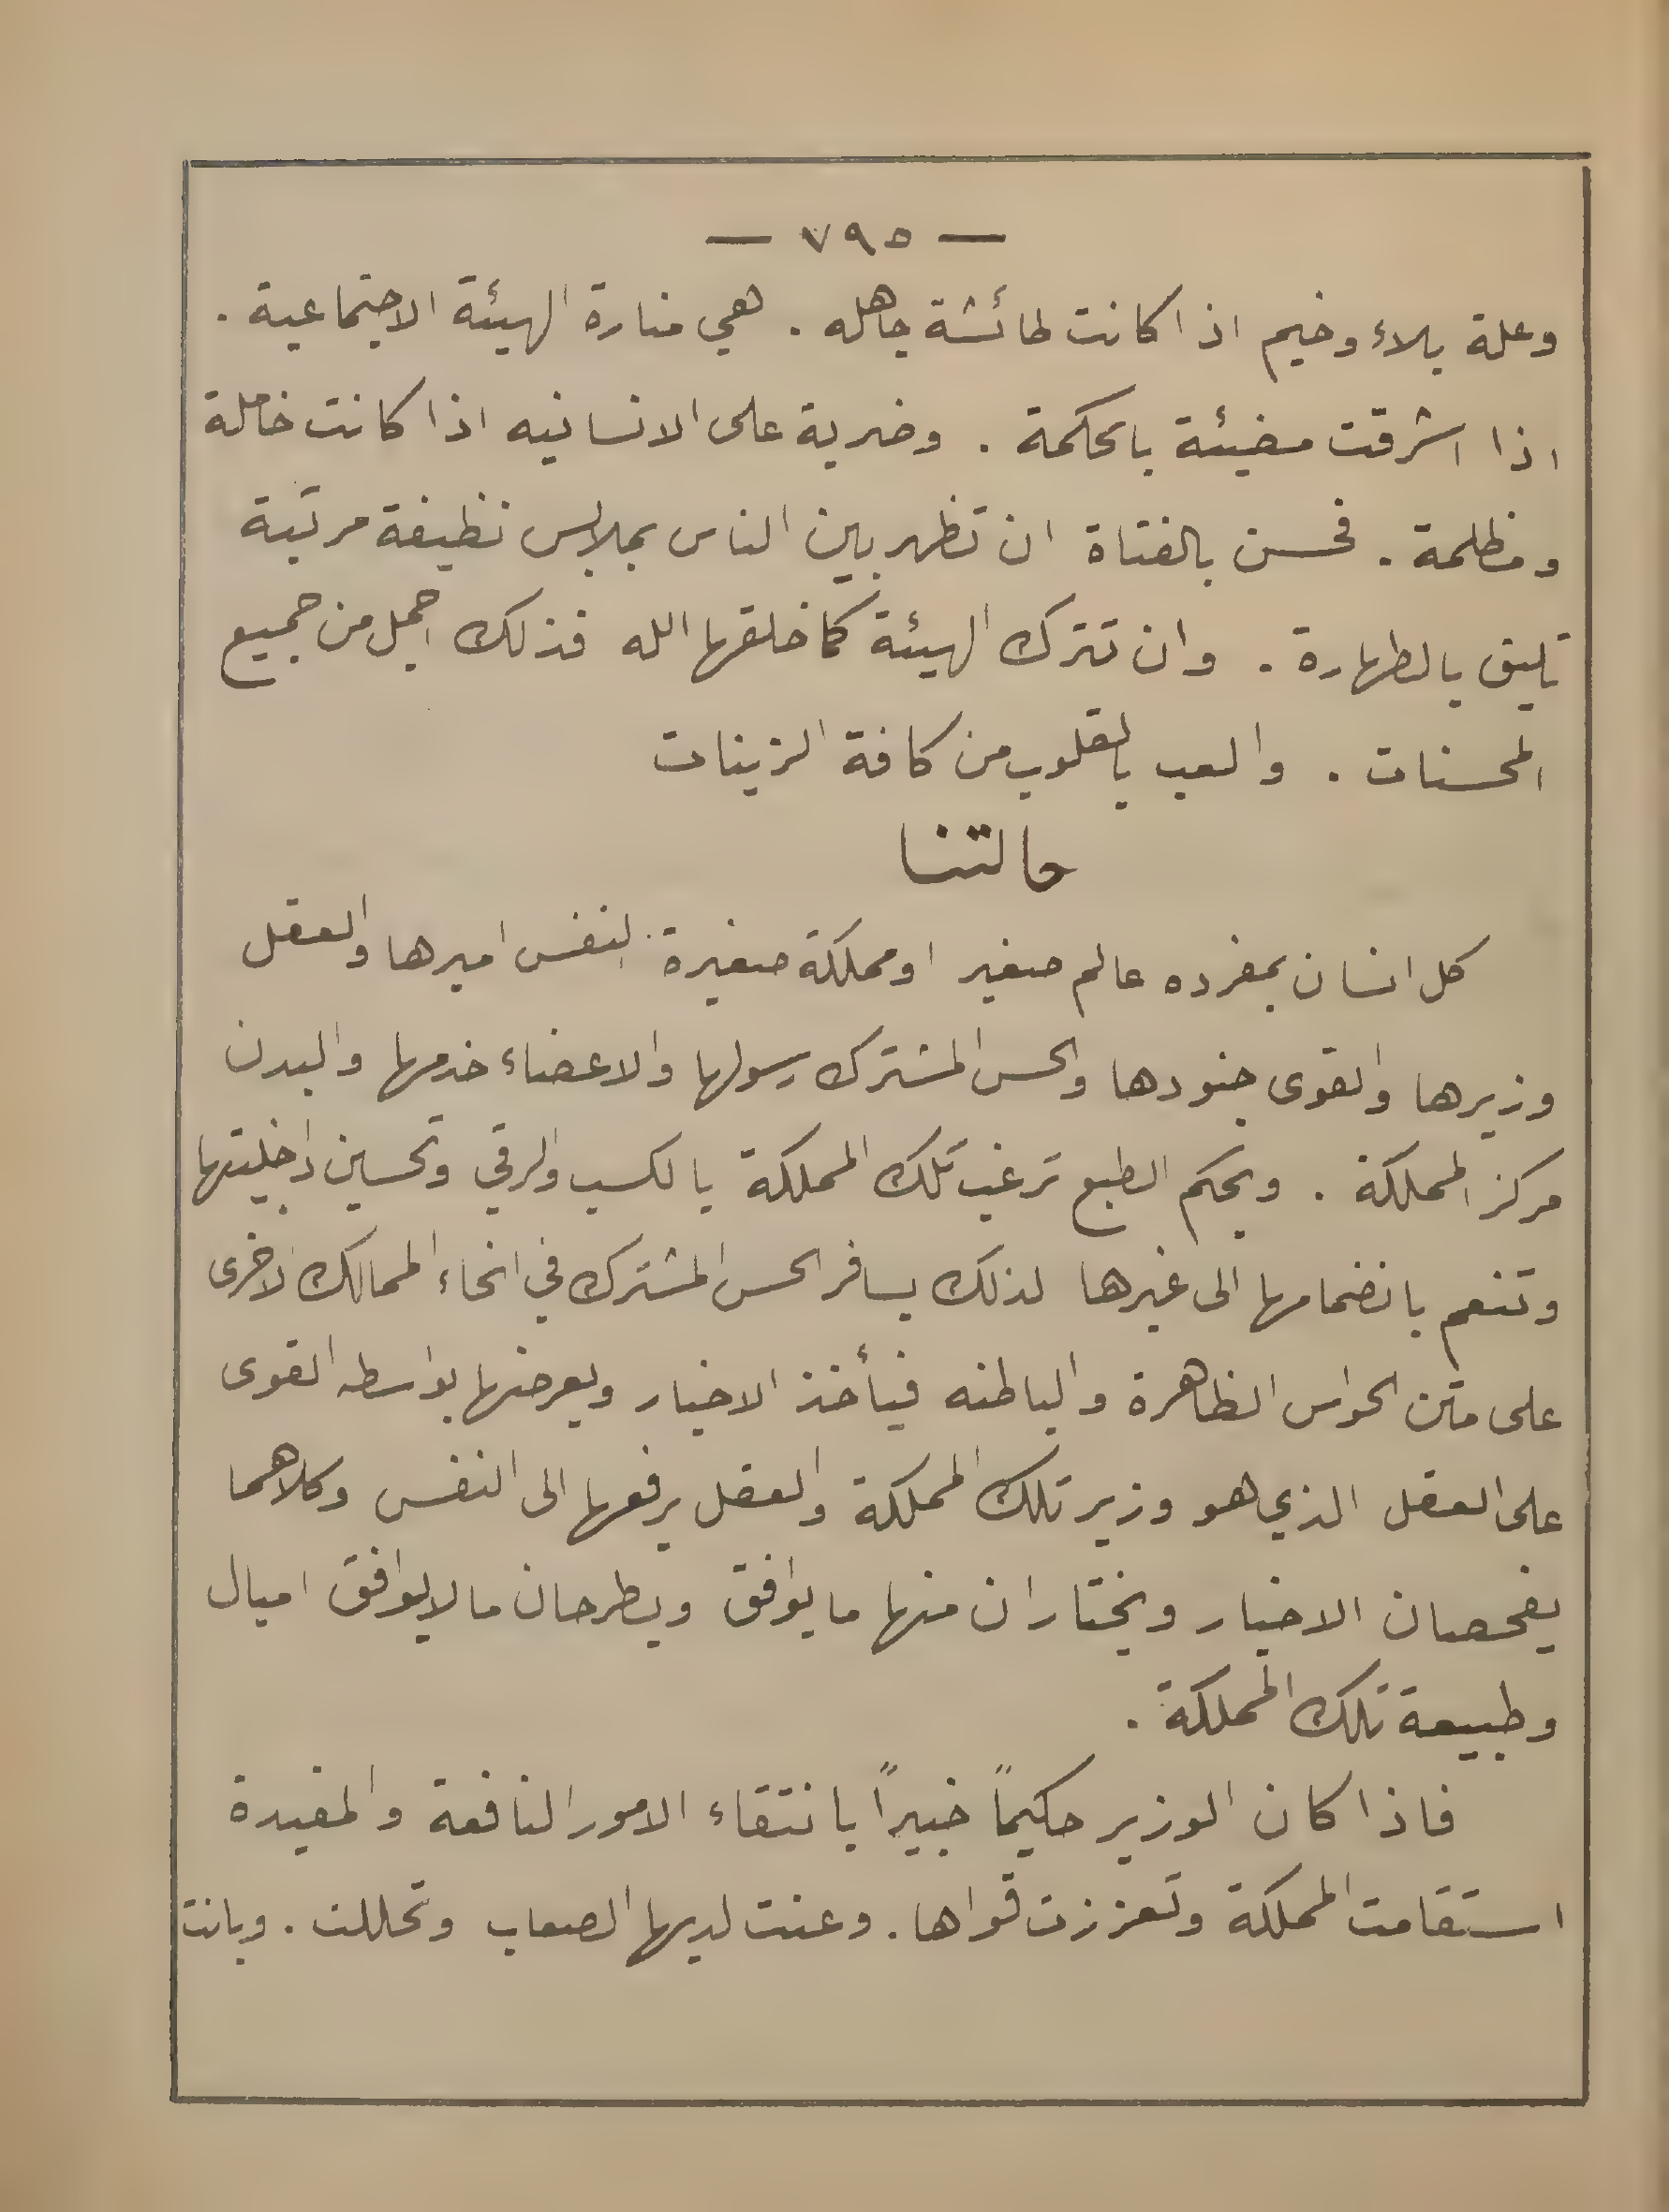 — ٧٩٥ —
وعلة بلاء وخيم اذا كانت طائشة جاهله . هي منارة الهيئة الاجتماعية .
اذا اشرقت مضيئة بالحكمة . وضربة على الانسانيه اذا كانت خاملة
ومظلمة . فحسن بالفتاة ان تظهر بين الناس بملابس نظيفة مرتبة
تليق بالطهارة . وان تترك الهيئة كما خلقها الله فذلك اجمل من جميع
المحسنات . والعب بالقلوب من كافة الزينات
حالتنا
كل انسان بمفرده عالم صغير او مملكة صغيرة . النفس اميرها والعقل
وزيرها والقوى جنودها والحس المشترك رسولها والاعضاء خدمها والبدن
مركز المملكة . وبحكم الطبع ترغب تلك المملكة بالكسب والرقي وتحسين داخليتها
وتنعم بانضمامها الى غيرها لذلك يسافر الحس المشترك في انحاء الممالك الاخرى
على متن الحواس الظاهرة والباطنه فيأخذ الاخبار ويعرضها بواسطه القوى
على العقل الذي هو وزير تلك المملكة والعقل يرفعها الى النفس وكلاهما
يفحصان الاخبار ويختاران منها ما يوافق ويطرحان ما لا يوافق اميال
وطبيعة تلك المملكة .
فاذا كان الوزير حكيماً خبيراً بانتقاء الامور النافعة والمفيدة
استقامت المملكة وتعززت قواها . وعنت لديها الصعاب وتحللت . وبانت